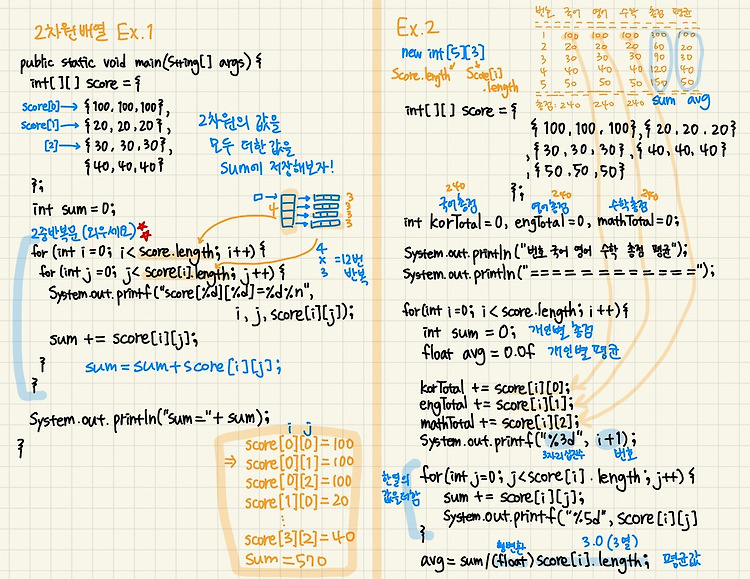 2차원배열 Ex.1
public static void main(String[] args) {
int[][] score = {
score[0]→ {100, 100, 100},
score[1]→ {20, 20, 20},
[2]→ {30, 30, 30},
{40, 40, 40}
};
2차원의 값을
모두 더한 값을
sum에 저장해보자!
int sum = 0;
4
3
3
3
3
2중반복문 (외우세요)
for (int i=0; i < score.length; i++) {
for (int j=0; j < score[i].length; j++) {
System.out.printf("score[%d][%d]=%d%n",
i, j, score[i][j]);
4
x =12번
3 반복
sum += score[i][j];
} sum = sum + score[i][j];
}
System.out.println("sum="+ sum);
}
i j
score[0][0] = 100
⇒ score[0][1] = 100
score[0][2] = 100
score[1][0] = 20
⋮
score[3][2] = 40
Sum = 570
Ex.2
new int[5][3]
score.length score[i].length
번호 국어 영어 수학 총점 평균
1 100 100 100 300 100
2 20 20 20 60 20
3 30 30 30 90 30
4 40 40 40 120 40
5 50 50 50 150 50
총점: 240 240 240 sum avg
int[][] score = {
{100, 100, 100}, {20, 20. 20}
,{30, 30, 30}, {40, 40, 40}
,{50. 50, 50}
};
240 240 240
국어총점 영어총점 수학총점
int korTotal = 0, engTotal = 0, mathTotal = 0;
System.out.println("번호 국어 영어 수학 총점 평균");
System.out.println("=============");
for(int i=0; i < score.length; i++){
int sum = 0; 개인별 총점
float avg = 0.0f 개인별 평균
korTotal += score[i][0];
engTotal += score[i][1];
mathTotal += score[i][2];
System.out.printf("%3d", i+1);
번호
한열의
값을더함
for(int j=0; j<score[i].length; j++) {
sum += score[i][j];
System.out.printf("%5d", score[i][j]
}
형변환 3.0 (3열)
avg = sum/(float)score[i].length; 평균값